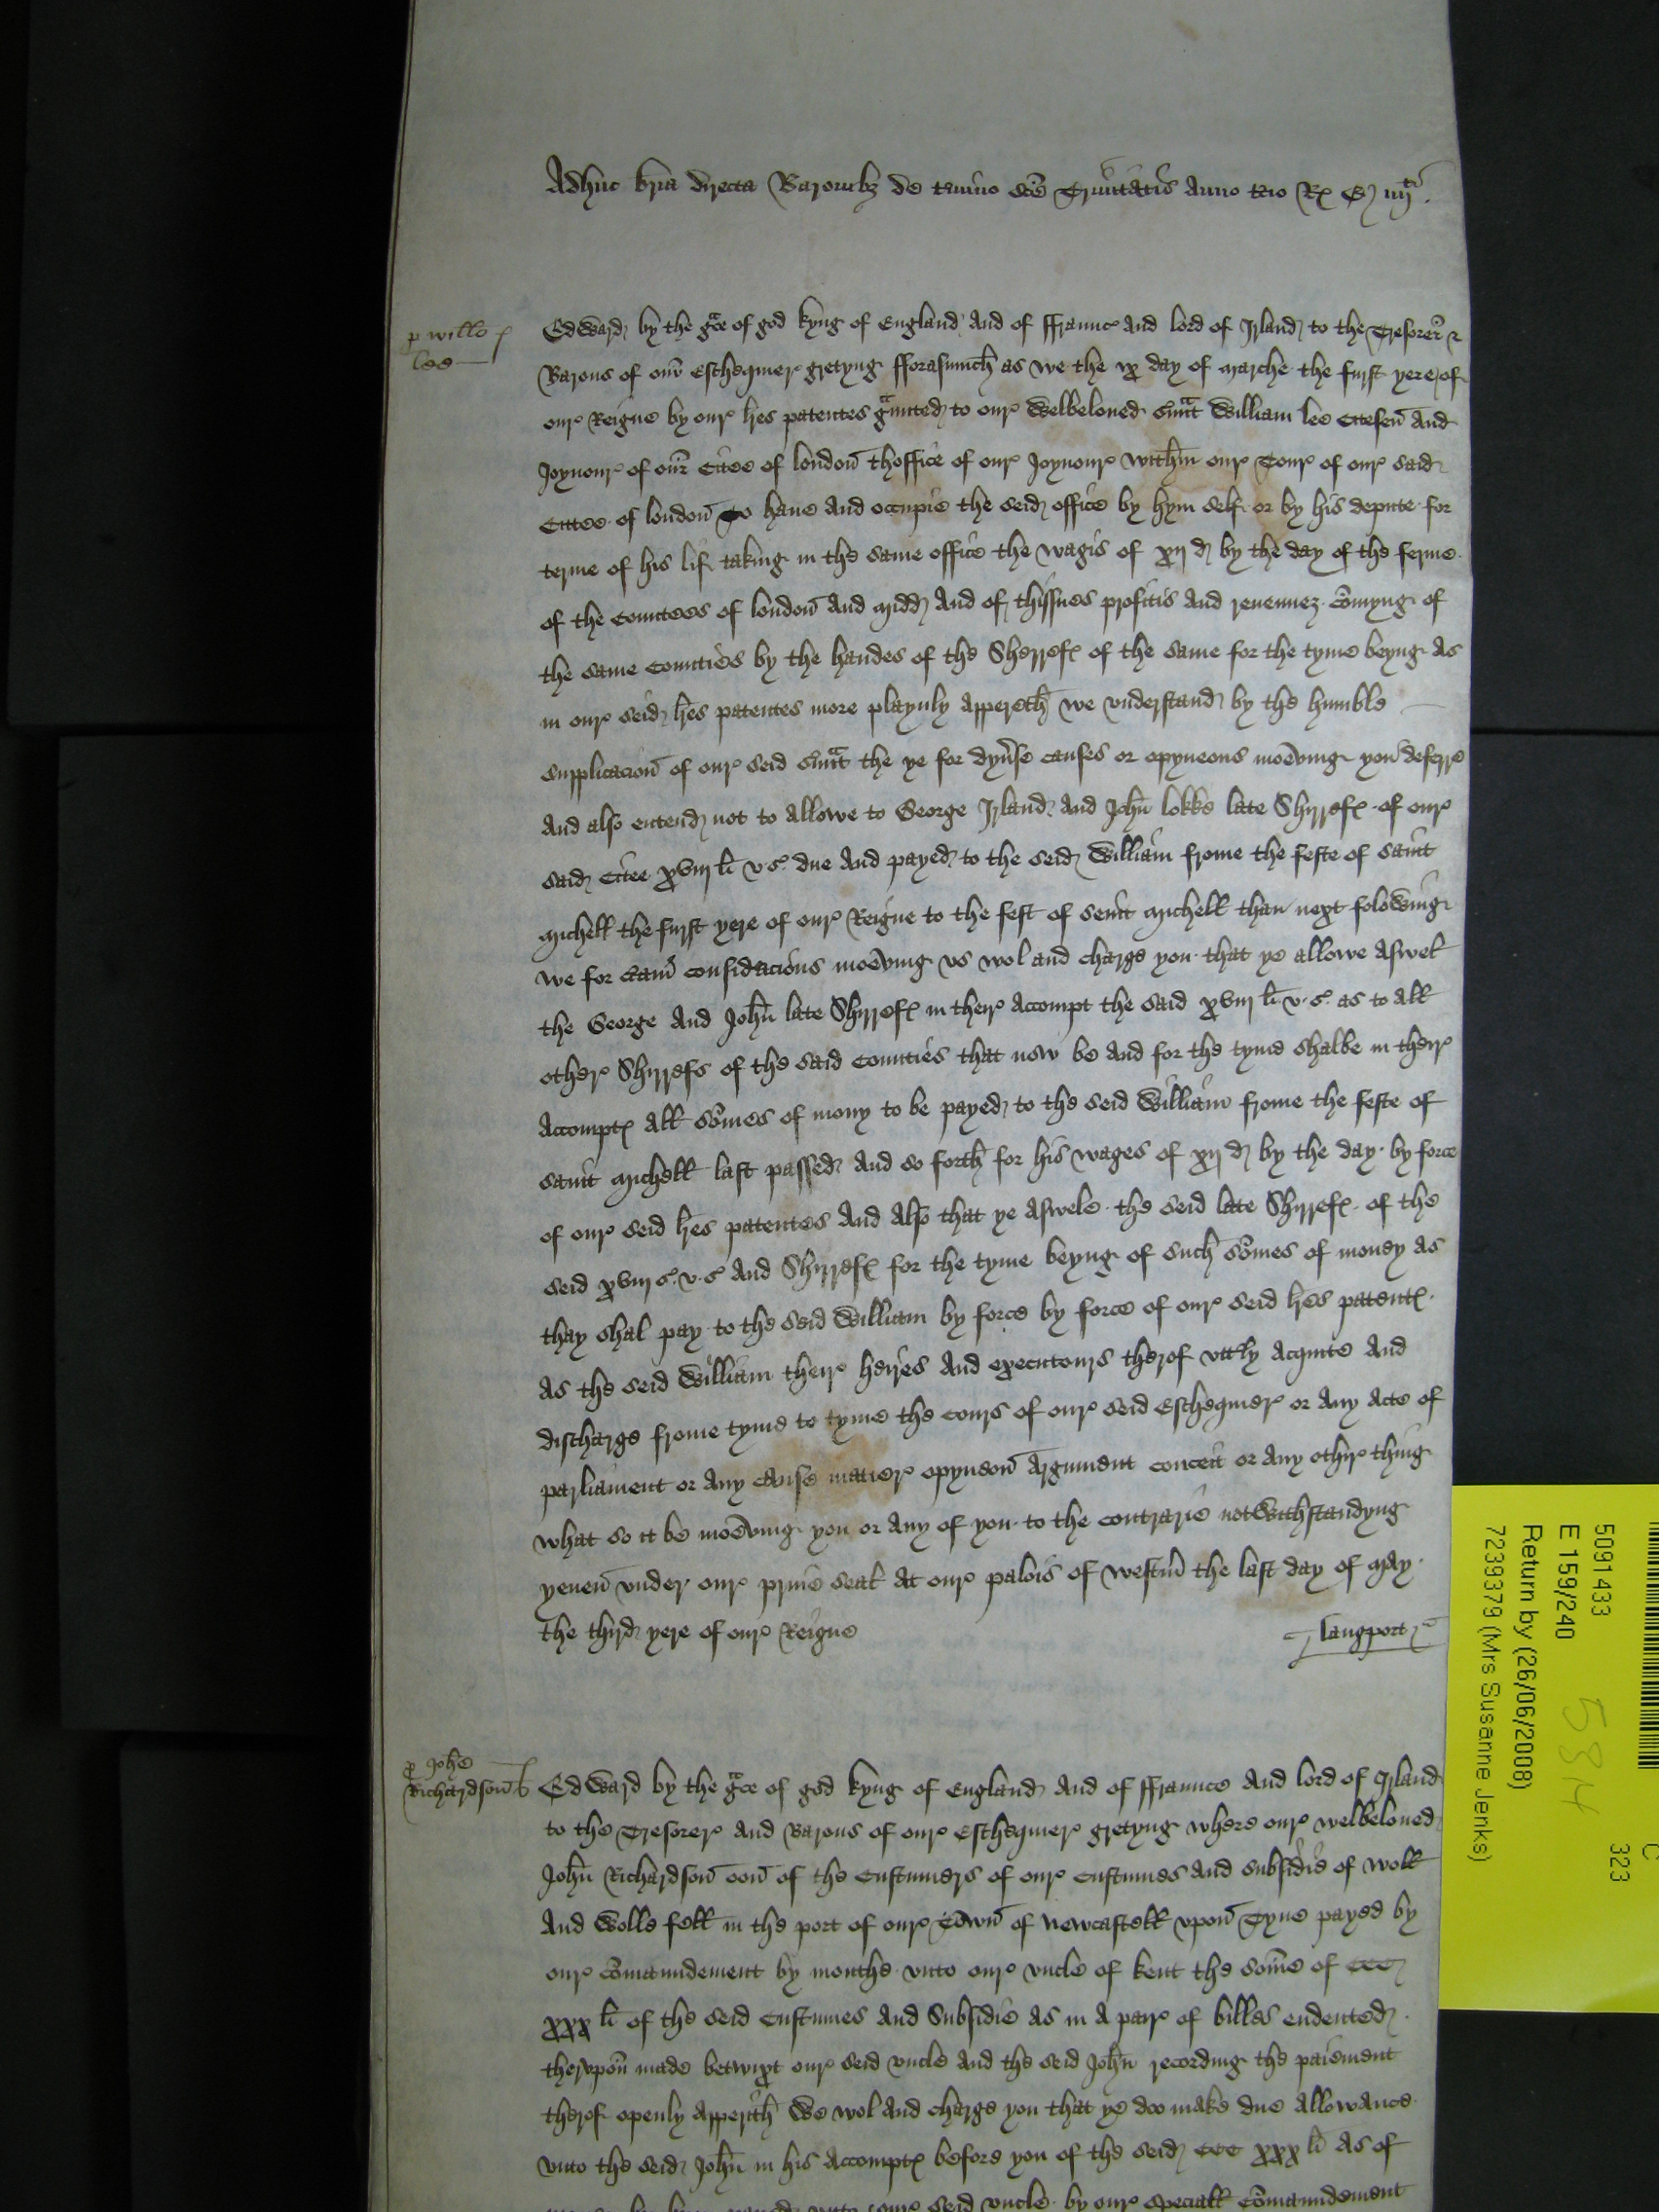 Adhuc bria directa Baronibz de tmino sce Trinitatis Anno tcio Rx E iiijti
p Willo
lee
Edward by the gce of god kyng of England And of ffraunce And lord of Irland to the Tresorer &
Barons of our Eschequier gretyng fforasmuch as we the xv day of Marche the furst yere of
our Reigne by our lres patentes gunted to our Welbeloued sunt William lee Citesen And
Joynour of our Citee of london thoffice of our Joynour within our Tour of our said
Cittee of london To haue And occupie the seid office by hym self or by his depute for
terme of his lif taking in the same office the wagis of xij d by the day of the ferme
of the Countees of london And Midd And of thissues profitis And reuennez comyng of
the same Counties by the handes of the Sherrefs of the same for the tyme beyng As
in our seid lres patentes more playnly Appereth we vnderstand by the humble
supplicacion of our seid sunt the ye for dyuse causes or opyneons moevyng you deferre
And also entend not to Allowe to George Irland And John lokke late Shirrefs of our
said Citee xviij li v s due And payed to the seid William frome the feste of saint
Michell the furst yere of our Reigne to the fest of seint Michell than next folowing
we for ctain considacions moevyng vs wol and charge you that ye allowe Aswel
the George And John late Shirrefs in their Accompt the said xviij li v s as to All
other Shirrefs of the said Counties that now be And for the tyme shalbe in their
Accompts All somes of mony to be payed to the seid William frome the feste of
saint Michell last passed And so forth for his wages of xij d by the day by force
of our seid lres patentes And Also that ye Aswele the seid late Shirrefs of the
seid xviij s v s And Shirrefs for the tyme beyng of such somes of money As
thay shal pay to the seid William by force by force of our seid lres patents
As the seid William their heires And executours therof vttly Acquite And
discharge frome tyme to tyme the cours of our seid Eschequier or Any Acte of
parliament or Any cause matier opyneon Argument conceit or Any othir thing
what so it be moevyng you or Any of you to the contrarie notwithstandyng
yeuen vnder our priue seal At our palois of Westm the last day of May
the third yere of our Reigne
langport
p Johe
Richardson
Edward by the gce of god kyng of England And of ffraunce And lord of Irland
to the Tresorer And Barons of our Eschequier gretyng where our welbeloued
John Richardson oon of the Custumers of our Custumes And subsidie of woll
And wolle fell in the port of our Town of Newcastell vpon Tyne payed by
our comaundement by monthe vnto our vncle of kent the some of CCC
xxx li of the seid Custumes And Subsidie As in A pair of billes endented
thervpon made betwixt our seid vncle And the seid John recording the paiement
therof openly Apperith We wol And charge you that ye doo make due Allowance
vnto the seid John in his Accompts before you of the seid CCC xxx li As of
vnto our seid vncle by our speciall comaundement
5091433
E 159/240
Return by (26/06/2008)
7239379 (Mrs Susanne Jenks)
C
323
5814